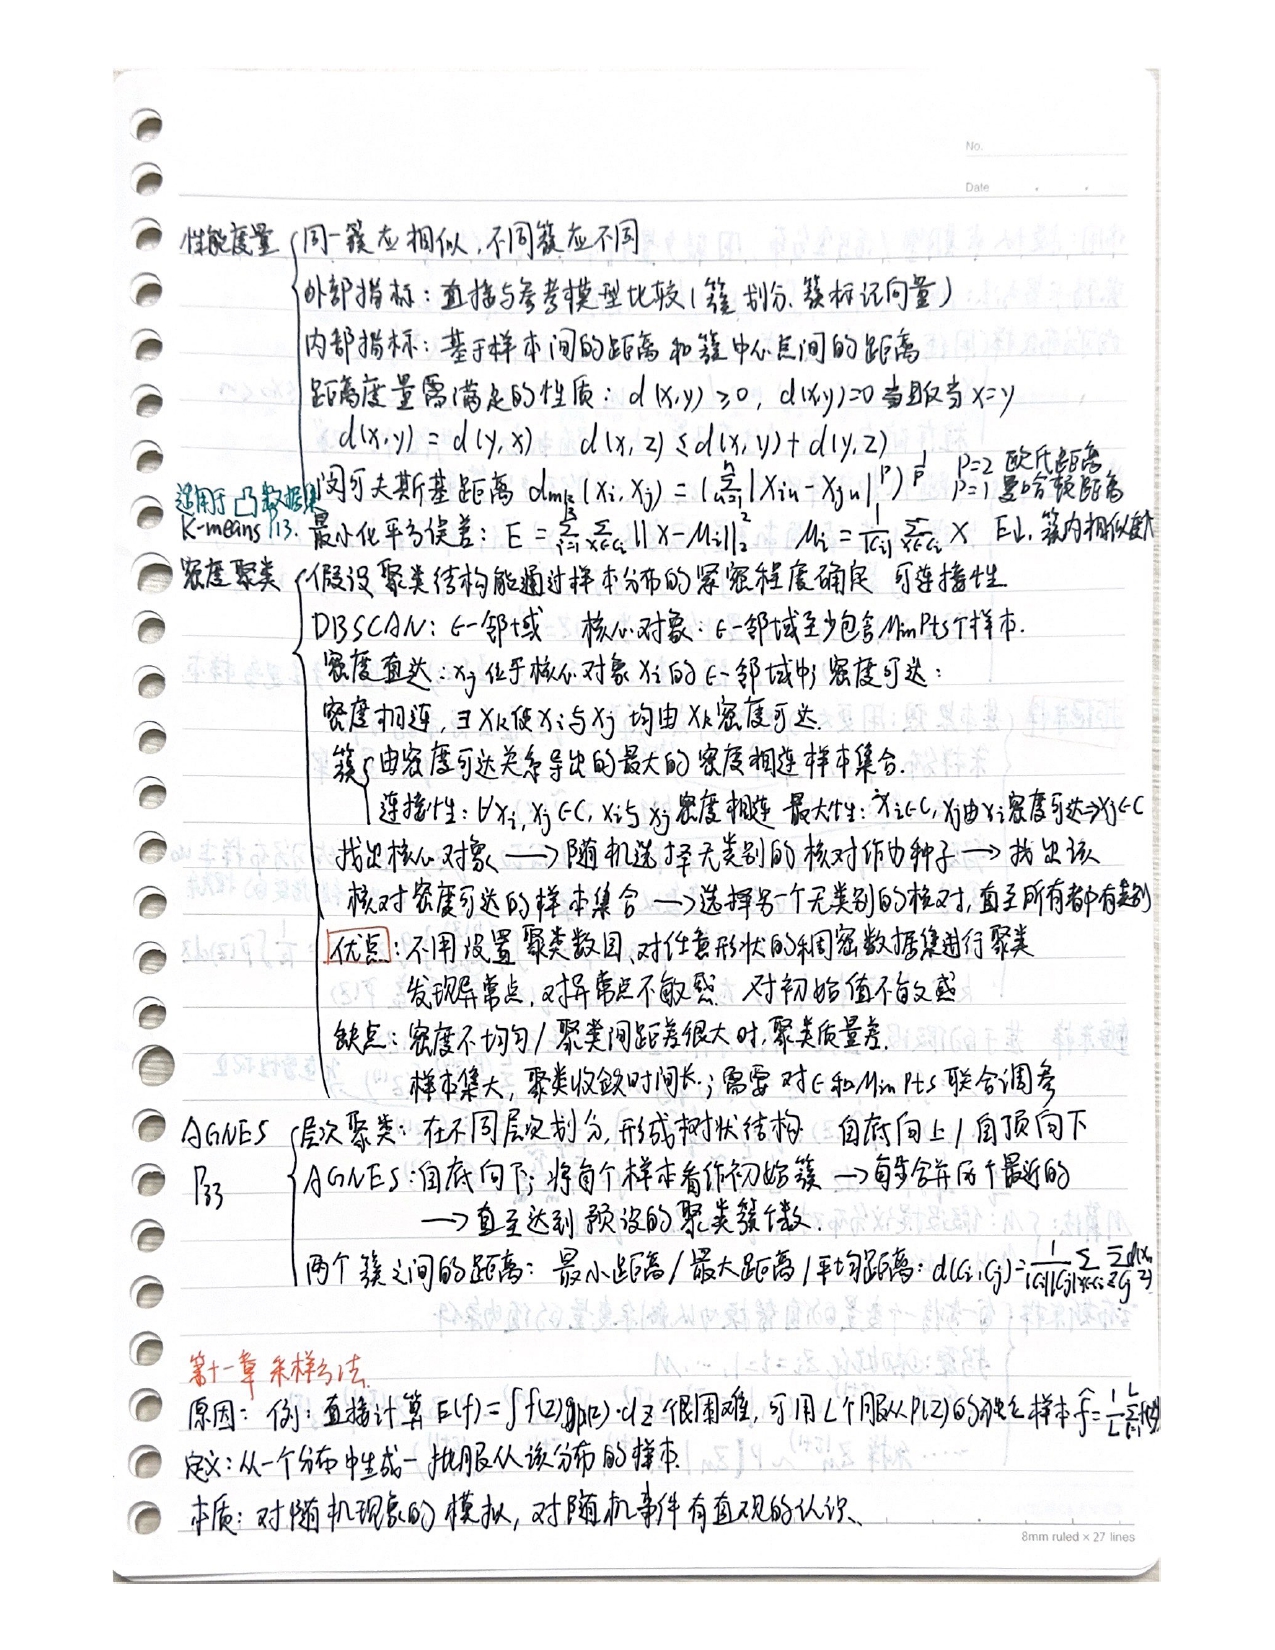 No.
Date
性能度量 同一簇应相似,不同簇应不同
外部指标:直接与参考模型比较(簇划分、簇标记向量)
内部指标:基于样本间的距离和簇中心点间的距离
距离度量需满足的性质: d(x,y) ≥0, d(x,y)=0 当且仅当 x=y
d(x,y) = d(y,x) d(x,z) ≤ d(x,y)+d(y,z)
闵可夫斯基距离 dmk(xi,xj) = (∑_{u=1}^{n}|xiu-xju|^p)^{1/p} P=2 欧氏距离
P=1 曼哈顿距离
适用于凸数据集
K-means P13. 最小化平方误差: E = ∑_{i=1}^{k} ∑_{x∈Ci} ||x-μi||₂² μi = 1/|Ci| ∑_{x∈Ci} x E↓, 簇内相似度大
密度聚类 假设聚类结构能通过样本分布的紧密程度确定 可连接性
DBSCAN: ϵ-邻域 核心对象: ϵ-邻域至少包含MinPts个样本.
密度直达: xj位于核心对象xi的ϵ-邻域中; 密度可达:
密度相连, ∃xk使xi与xj 均由xk密度可达.
簇 由密度可达关系导出的最大的密度相连样本集合.
连接性: ∀xi, xj∈C, xi与xj 密度相连 最大性: xi∈C, xj由xi密度可达⇒xj∈C
找出核心对象 → 随机选择无类别的核对作为种子 → 找出该
核对密度可达的样本集合 → 选择另一个无类别的核对,直至所有都有类别
优点: 不用设置聚类数目、对任意形状的稠密数据集进行聚类
发现异常点,对异常点不敏感 对初始值不敏感
缺点: 密度不均匀/聚类间距差很大时,聚类质量差.
样本集大,聚类收敛时间长; 需要对ϵ和MinPts联合调参
AGNES 层次聚类: 在不同层次划分,形成树状结构 自底向上/自顶向下
P33 AGNES: 自底向下; 将每个样本看作初始簇 → 每步合并两个最近的
→ 直至达到预设的聚类簇个数.
两个簇之间的距离: 最小距离/最大距离/平均距离: d(Ci,Cj)=1/(|Ci||Cj|) ∑_{x∈Ci} ∑_{z∈Cj} d(x,z)
第十一章 采样方法
原因: 例: 直接计算E(f)=∫f(z)p(z)·dz 很困难,可用L个服从P(z)的独立样本 f̂=1/L ∑_{l=1}^{L}
定义: 从一个分布中生成一批服从该分布的样本.
本质: 对随机现象的模拟,对随机事件有直观的认识、
8mm ruled × 27 lines